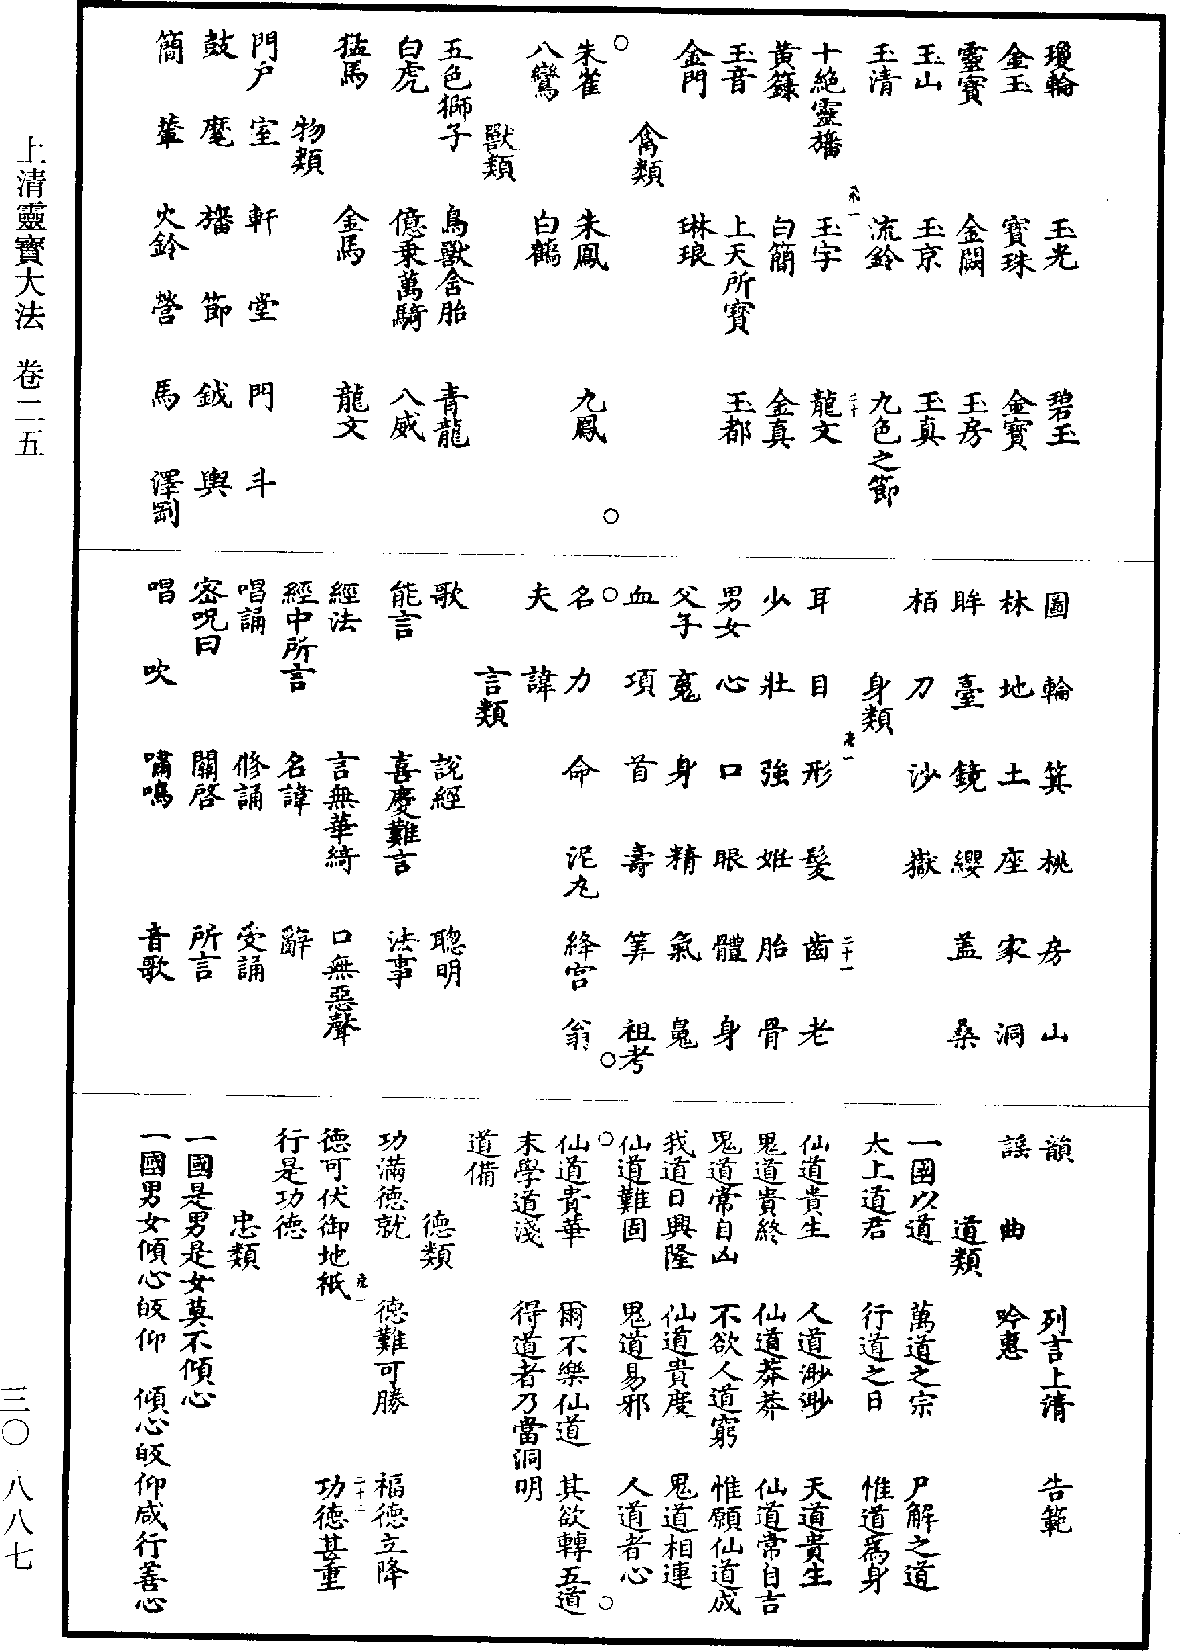 上清靈寶大法　卷二五
三〇　八八七
瓊輪　玉光　碧玉
金玉　寶珠　金寶
靈寶　金闕　玉房
玉山　玉京　玉真
玉清　流鈴　九色之節
二十
十絕靈旛　玉字　龍文
黃籙　白簡　金真
玉音　上天所寶　玉都
金門　琳琅
禽類
朱雀　朱鳳　九鳳
八鸞　白鶴
獸類
五色獅子　鳥獸含胎　青龍
白虎　億乘萬騎　八威
猛馬　金馬　龍文
物類
門户　室　軒　堂　門　斗
鼓　麾　旛　節　鉞　輿
簡　輦　火鈴　營　馬　澤劚
圖　輪　箕　桃　房　山
林　地　土　座　家　洞
眸　臺　鏡　纓　盖　桑
栢　刀　沙　嶽
身類
二十一
耳　目　形　髮　齒　老
少　壯　強　姙　胎　骨
男女　心　口　眼　體　身
父子　䰟　身　精　氣　䰟
血　項　首　壽　筭　祖考
名　力　命　泥丸　絳宮　翁
夫　諱
言類
歌　說經　聰明
能言　喜慶難言　法事
經法　言無華綺　口無惡聲
經中所言　名諱　辭
唱誦　修誦　受誦
密咒曰　關啓　所言
唱　吹　嘯鳴　音歌
韻　列言上清　告範
謡　曲　吟𢛳
道類
一國以道　萬道之宗　尸解之道
太上道君　行道之日　惟道爲身
仙道貴生　人道渺渺　天道貴生
鬼道貴終　仙道莽莽　仙道常自吉
鬼道常自凶　不欲人道窮　惟願仙道成
我道日興隆　仙道貴度　鬼道相連
仙道難固　鬼道易邪　人道者心
仙道貴華　爾不樂仙道　其欲轉五道
末學道淺　得道者乃當洞明
道備
德類
功滿德就　德難可勝　福德立降
二十二
德可伏御地祇　功德甚重
行是功德
忠類
一國是男是女莫不傾心
一國男女傾心皈仰　傾心皈仰咸行善心